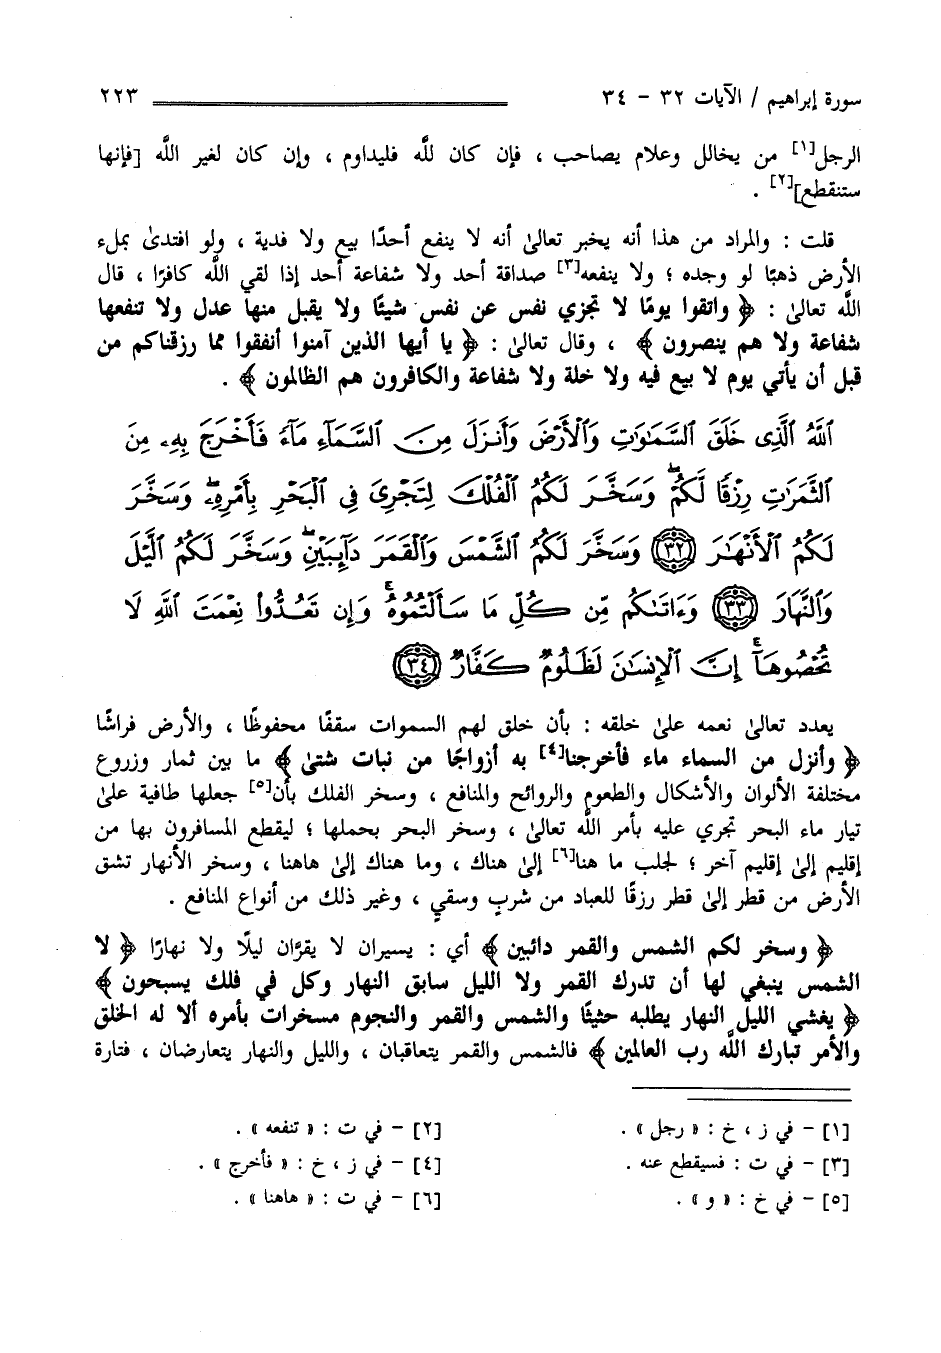 سورة إبراهيم / الآيات ٣٢ - ٣٤ ٢٢٣
الرجل[١] من يخالل وعلام يصاحب ، فإن كان للَّه فليداوم ، وإن كان لغير اللَّه [فإنها
ستنقطع][٢] .
قلت : والمراد من هذا أنه يخبر تعالىٰ أنه لا ينفع أحدًا بيع ولا فدية ، ولو افتدىٰ بملء
الأرض ذهبًا لو وجده ؛ ولا ينفعه[٣] صداقة أحد ولا شفاعة أحد إذا لقي اللَّه كافرًا ، قال
اللَّه تعالىٰ : ﴿ واتقوا يومًا لا تجزي نفس عن نفس شيئًا ولا يقبل منها عدل ولا تنفعها
شفاعة ولا هم ينصرون ﴾ ، وقال تعالىٰ : ﴿ يا أيها الذين آمنوا أنفقوا مما رزقناكم من
قبل أن يأتي يوم لا بيع فيه ولا خلة ولا شفاعة والكافرون هم الظالمون ﴾ .
ٱللَّهُ ٱلَّذِى خَلَقَ ٱلسَّمَٰوَٰتِ وَٱلْأَرْضَ وَأَنزَلَ مِنَ ٱلسَّمَآءِ مَآءً فَأَخْرَجَ بِهِۦ مِنَ
ٱلثَّمَرَٰتِ رِزْقًا لَّكُمْ ۖ وَسَخَّرَ لَكُمُ ٱلْفُلْكَ لِتَجْرِىَ فِى ٱلْبَحْرِ بِأَمْرِهِۦ ۖ وَسَخَّرَ
لَكُمُ ٱلْأَنْهَٰرَ ٣٢ وَسَخَّرَ لَكُمُ ٱلشَّمْسَ وَٱلْقَمَرَ دَآئِبَيْنِ ۖ وَسَخَّرَ لَكُمُ ٱلَّيْلَ
وَٱلنَّهَارَ ٣٣ وَءَاتَىٰكُم مِّن كُلِّ مَا سَأَلْتُمُوهُ ۚ وَإِن تَعُدُّوا۟ نِعْمَتَ ٱللَّهِ لَا
تُحْصُوهَآ ۗ إِنَّ ٱلْإِنسَٰنَ لَظَلُومٌ كَفَّارٌ ٣٤
يعدد تعالىٰ نعمه علىٰ خلقه : بأن خلق لهم السموات سقفًا محفوظًا ، والأرض فراشًا
﴿ وأنزل من السماء ماء فأخرجنا[٤] به أزواجًا من نبات شتىٰ ﴾ ما بين ثمار وزروع
مختلفة الألوان والأشكال والطعوم والروائح والمنافع ، وسخر الفلك بأن[٥] جعلها طافية علىٰ
تيار ماء البحر تجري عليه بأمر اللَّه تعالىٰ ، وسخر البحر بحملها ؛ ليقطع المسافرون بها من
إقليم إلىٰ إقليم آخر ؛ لجلب ما هنا[٦] إلىٰ هناك ، وما هناك إلىٰ هاهنا ، وسخر الأنهار تشق
الأرض من قطر إلىٰ قطر رزقًا للعباد من شربٍ وسقيٍ ، وغير ذلك من أنواع المنافع .
﴿ وسخر لكم الشمس والقمر دائبين ﴾ أي : يسيران لا يقرَّان ليلًا ولا نهارًا ﴿ لا
الشمس ينبغي لها أن تدرك القمر ولا الليل سابق النهار وكل في فلك يسبحون ﴾
﴿ يغشي الليل النهار يطلبه حثيثًا والشمس والقمر والنجوم مسخرات بأمره ألا له الخلق
والأمر تبارك اللَّه رب العالمين ﴾ فالشمس والقمر يتعاقبان ، والليل والنهار يتعارضان ، فتارة
[١] - في ز ، خ : « رجل » . [٢] - في ت : « تنفعه » .
[٣] - في ت : فسيقطع عنه . [٤] - في ز ، خ : « فأخرج » .
[٥] - في خ : « و » . [٦] - في ت : « هاهنا » .